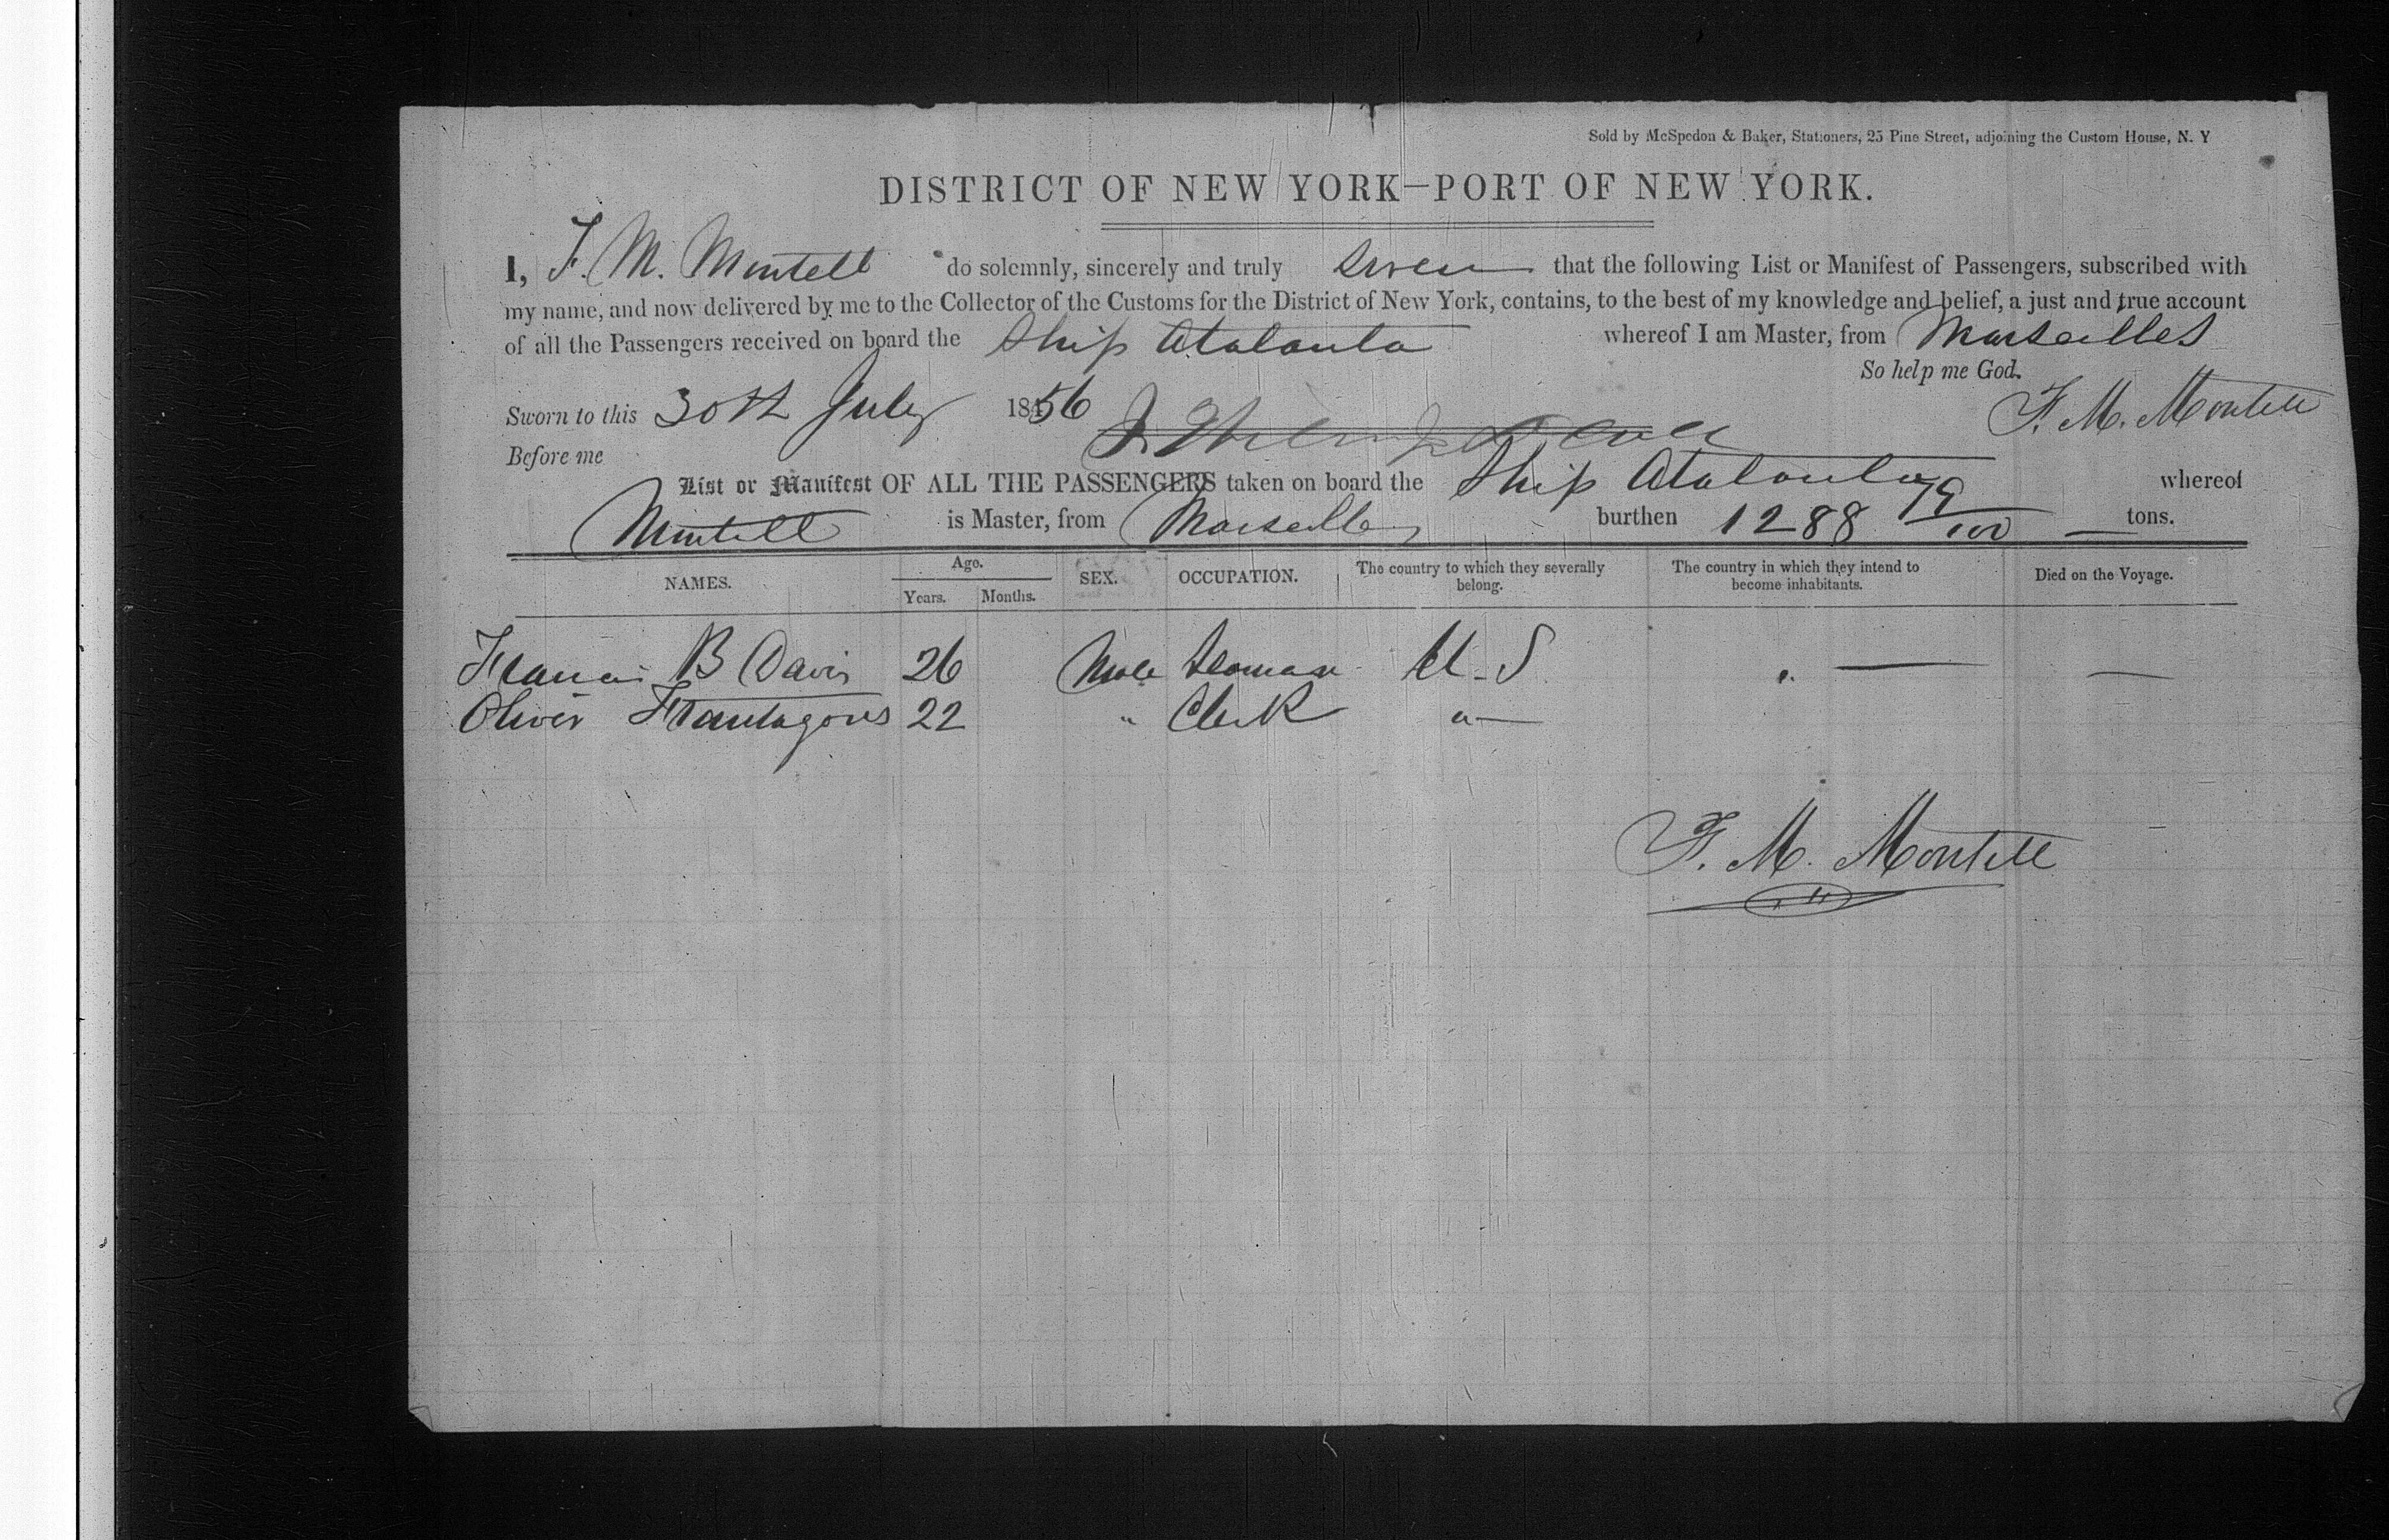 Sold by McSpedon & Baker, Stationers, 25 Pine Street, adjoining the Custom House, N. Y
DISTRICT OF NEW YORK—PORT OF NEW YORK.
I, F. M. Montell do solemnly, sincerely and truly swear that the following List or Manifest of Passengers, subscribed with
my name, and now delivered by me to the Collector of the Customs for the District of New York, contains, to the best of my knowledge and belief, a just and true account
of all the Passengers received on board the Ship Atalanta whereof I am Master, from Marseilles
So help me God.
Sworn to this 30th July 1856 F. M. Montell
Before me
List or Manifest OF ALL THE PASSENGERS taken on board the Ship Atalanta whereof
Montell is Master, from Marseilles burthen 1288 79/100 tons.
NAMES. Age. Years. Months. SEX. OCCUPATION. The country to which they severally belong. The country in which they intend to become inhabitants. Died on the Voyage.
Francis B Davis 26 Male Seaman U. S. " — —
Oliver 22 " Clerk "—
F. M. Montell